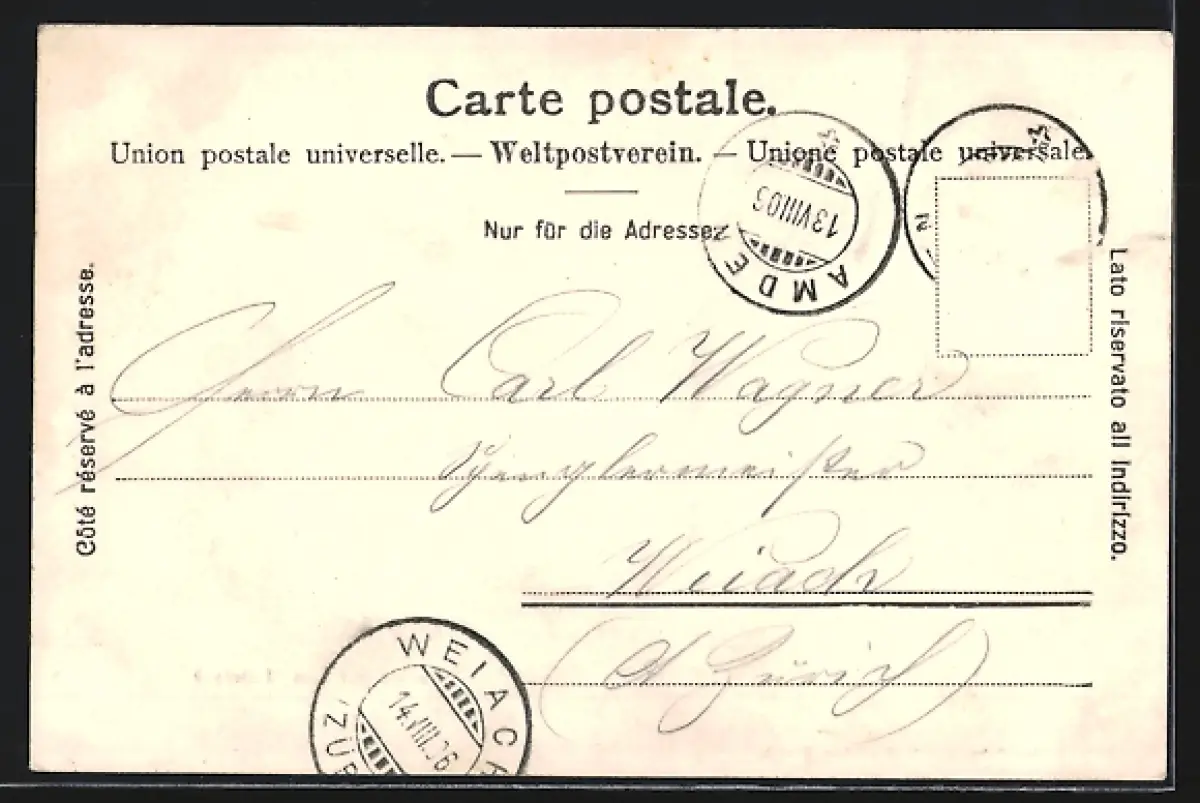 Carte postale.
Union postale universelle. — Weltpostverein. — Unione postale universale.
Nur für die Adresse
AMDEN
13 VIII 06
Côté réservé à l'adresse.
Lato riservato all Indirizzo.
Herrn Carl Wagner
Spenglermeister
Weiach
(Ct Zürich)
WEIACH
14.VIII.06
ZÜR